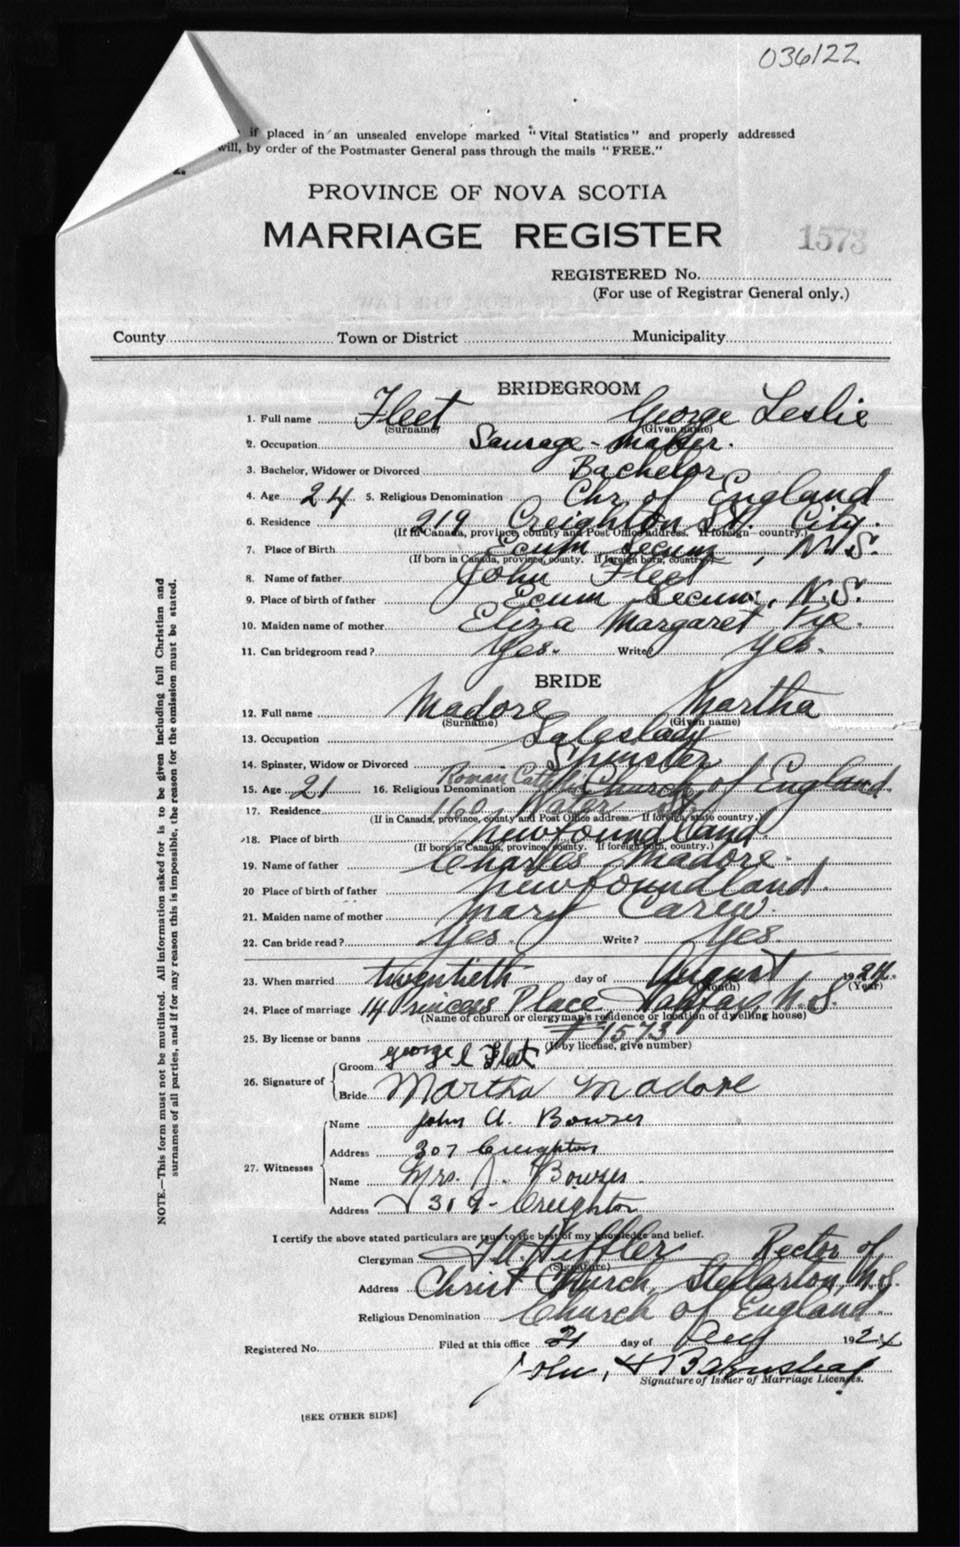 036122
if placed in an unsealed envelope marked "Vital Statistics" and properly addressed
will, by order of the Postmaster General pass through the mails "FREE."
PROVINCE OF NOVA SCOTIA
MARRIAGE REGISTER 1573
REGISTERED No.
(For use of Registrar General only.)
County Town or District Municipality
BRIDEGROOM
1. Full name Fleet George Leslie
(Surname) (Given name)
2. Occupation Sausage-maker.
3. Bachelor, Widower or Divorced Bachelor
4. Age 24 5. Religious Denomination Chr. of England
6. Residence 219 Creighton St. City.
(If in Canada, province, county and Post Office address. If foreign country.)
7. Place of Birth Ecum Secum, N.S.
(If born in Canada, province, county. If foreign born, country)
8. Name of father John Fleet
9. Place of birth of father Ecum Secum, N.S.
10. Maiden name of mother Eliza Margaret Pye.
11. Can bridegroom read? Yes. Write? Yes.
BRIDE
12. Full name Madore Martha
(Surname) (Given name)
13. Occupation Saleslady
14. Spinster, Widow or Divorced Spinster
15. Age 21 16. Religious Denomination Roman Cath Church of England.
17. Residence 160 Water St.
(If in Canada, province, county and Post Office address. If foreign, state country.)
18. Place of birth Newfoundland.
(If born in Canada, province, county. If foreign born, country.)
19. Name of father Charles Madore.
20 Place of birth of father Newfoundland.
21. Maiden name of mother Mary Carew.
22. Can bride read? Yes. Write? Yes.
23. When married twentieth day of August 1924.
(Month) (Year)
24. Place of marriage 14 Princess Place, Halifax, N.S.
(Name of church or clergyman's residence or location of dwelling house)
25. By license or banns #1573
(If by license, give number)
26. Signature of Groom George L Fleet
Bride Martha Madore
27. Witnesses Name John A. Bowser
Address 307 Creighton
Name Mrs. J. Bowser.
Address 319 - Creighton
I certify the above stated particulars are true to the best of my knowledge and belief.
Clergyman Rector of
(Signature)
Address Christ Church, Stellarton, N.S.
Religious Denomination Church of England.
Registered No. Filed at this office 21 day of Aug 1924
John H
Signature of Issuer of Marriage Licenses.
[SEE OTHER SIDE]
NOTE.—This form must not be mutilated. All information asked for is to be given including full Christian and
surnames of all parties, and if for any reason this is impossible, the reason for the omission must be stated.